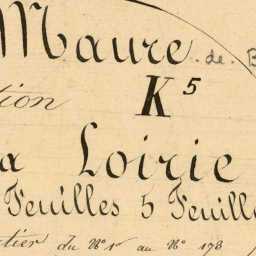 Maure de B
tion K⁵
a Loirie
Feuilles 5 Feuille
tier du N° 1er au N° 173